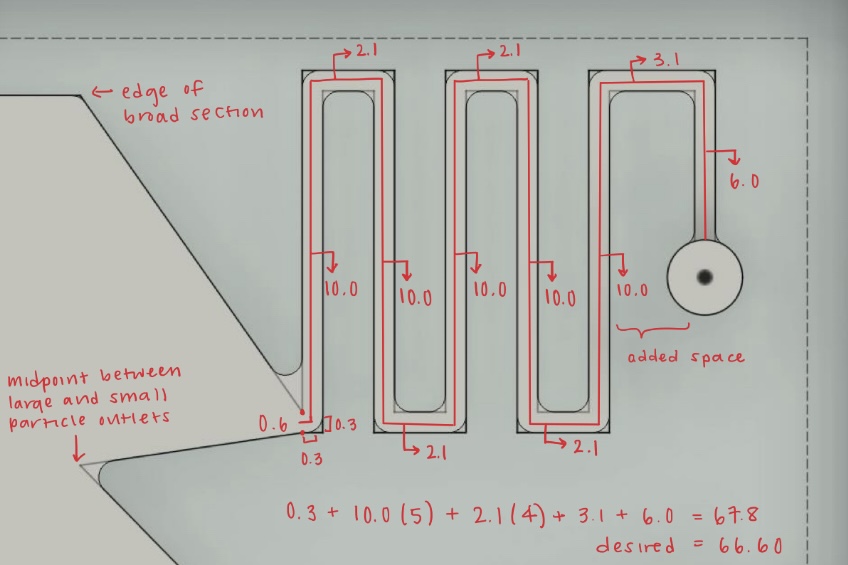 2.1
2.1
3.1
← edge of
broad section
6.0
10.0
10.0
10.0
10.0
10.0
added space
midpoint between
large and small
particle outlets
0.6
0.3
0.3
2.1
2.1
0.3 + 10.0 (5) + 2.1 (4) + 3.1 + 6.0 = 67.8
desired = 66.60